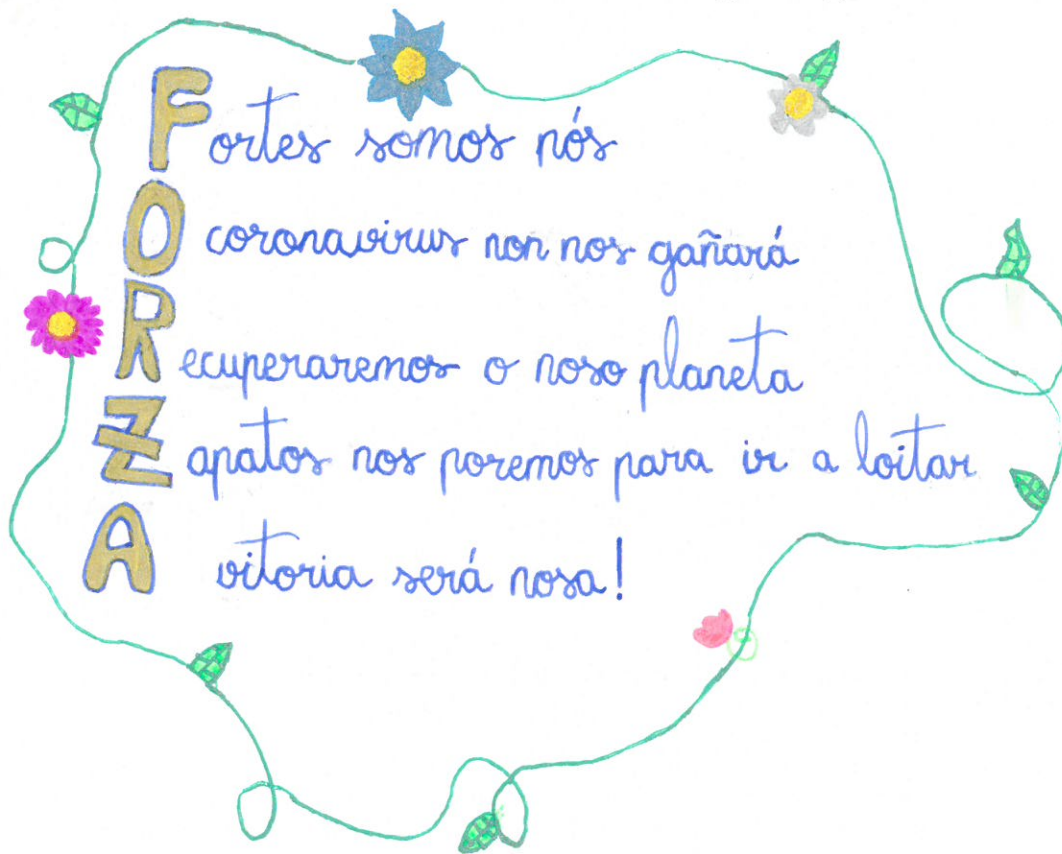 Fortes somos nós
O coronavirus non nos gañará
Recuperaremos o noso planeta
Zapatos nos poremos para ir a loitar
A vitoria será nosa!